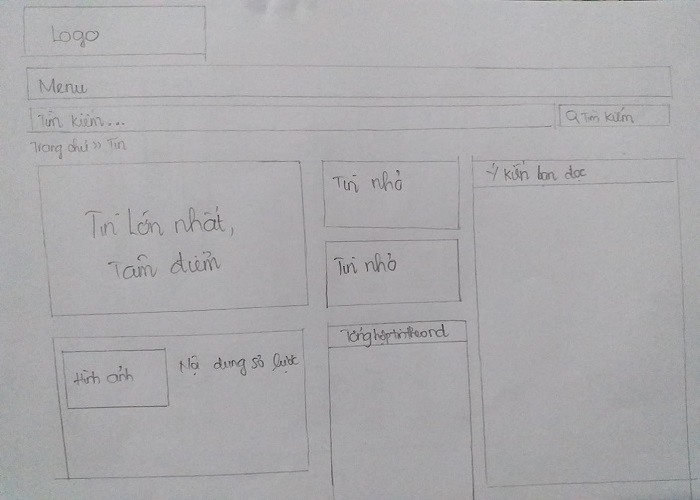 Logo
Menu
Tìm kiếm...
Tìm kiếm
Trang chủ >> Tin
Tin lớn nhất,
Tâm điểm
Tin nhỏ
Tin nhỏ
Ý kiến bạn đọc
Hình ảnh
Nội dung sơ lược